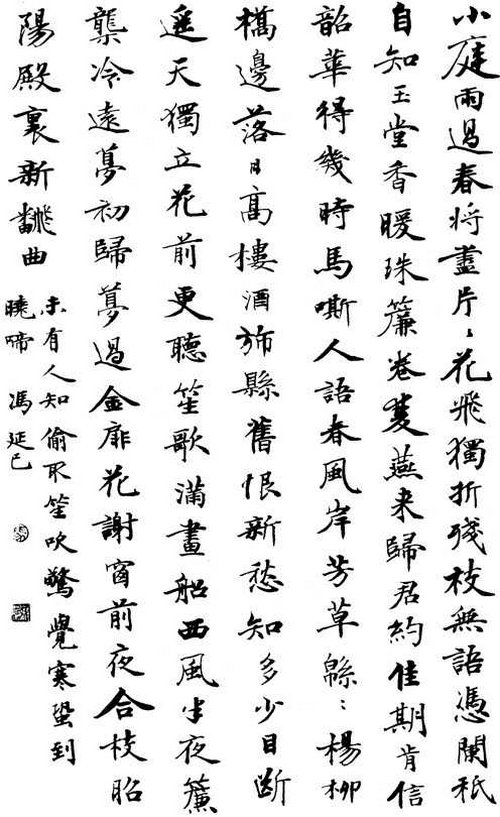 小庭雨過春將盡片々花飛獨折殘枝無語憑闌祇
自知玉堂香暖珠簾卷雙燕来歸君約佳期肯信
韶華得幾時馬嘶人語春風岸芳草緜々楊柳
橋邊落日高樓酒斾縣舊恨新愁知多少目斷
遥天獨立花前更聽笙歌滿畫船西風半夜簾
櫳冷遠夢初歸夢過金扉花謝窗前夜合枝昭
陽殿裏新飜曲
未有人知偷取笙吹驚覺寒蛩到
曉啼 馮延巳